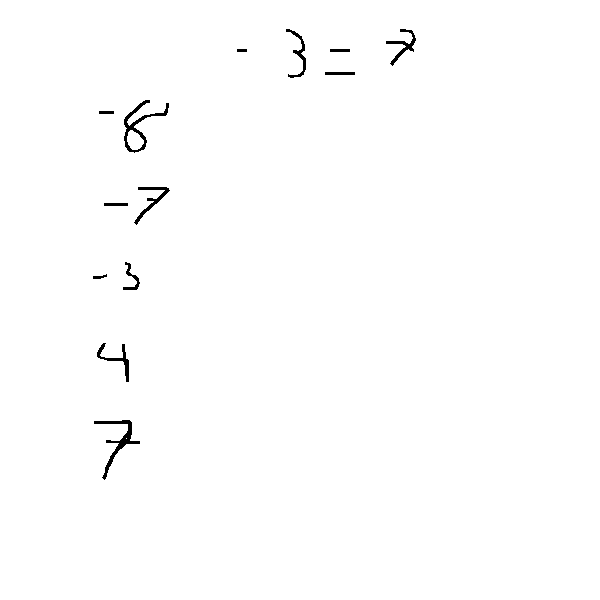 - 3 = 7
-8
-7
-3
4
7